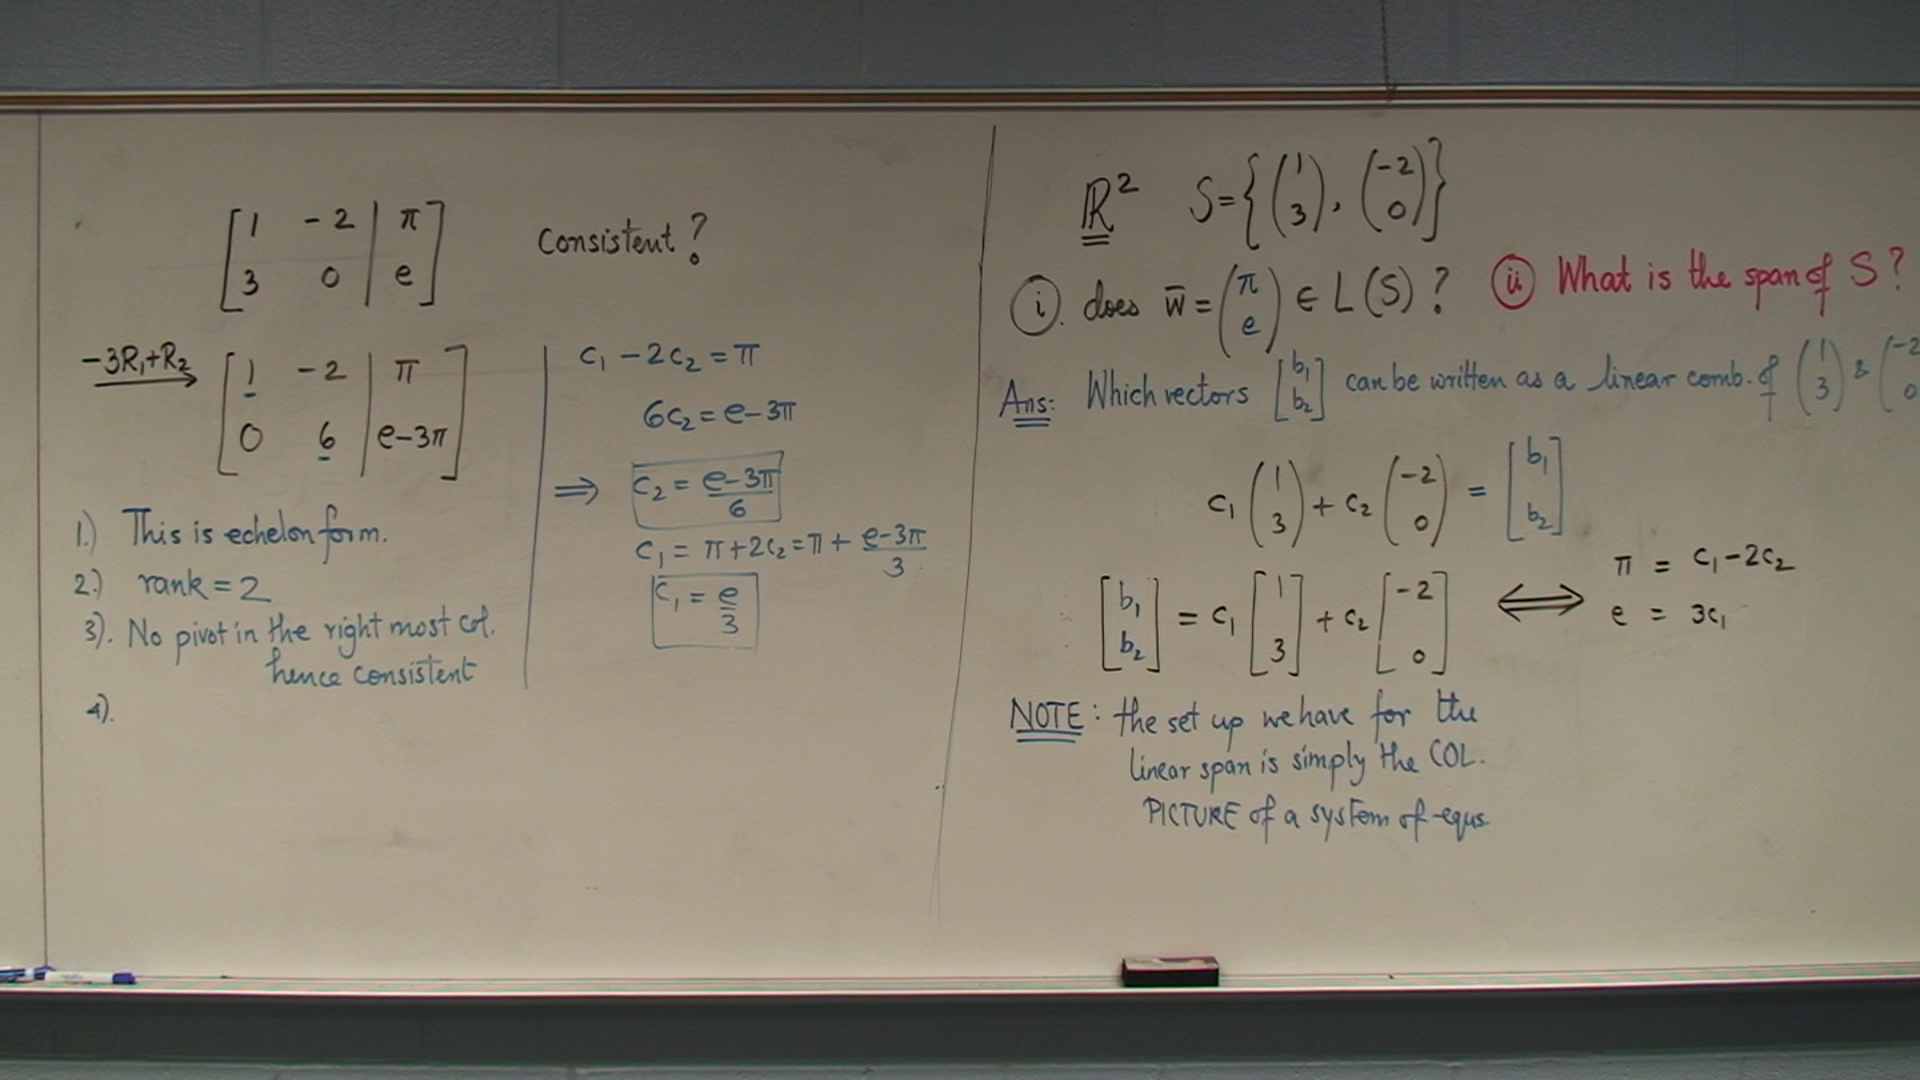 [1 -2 | π]
[3 0 | e] Consistent?
-3R₁+R₂ → [1 -2 | π]
[0 6 | e-3π]
1.) This is echelon form.
2.) rank = 2
3). No pivot in the right most col.
hence consistent
4).
c₁ - 2c₂ = π
6c₂ = e-3π
⟹ c₂ = (e-3π)/6
c₁ = π+2c₂ = π + (e-3π)/3
c₁ = e/3
ℝ² S = { (1 3), (-2 0) }
(i). does w̄ = (π e) ∈ L(S)? (ii) What is the span of S?
Ans: Which vectors [b₁ b₂] can be written as a linear comb. of (1 3) & (-2 0
c₁ (1 3) + c₂ (-2 0) = [b₁ b₂]
[b₁ b₂] = c₁ [1 3] + c₂ [-2 0] ⟺ π = c₁-2c₂
e = 3c₁
NOTE: the set up we have for the
linear span is simply the COL.
PICTURE of a system of eqns.